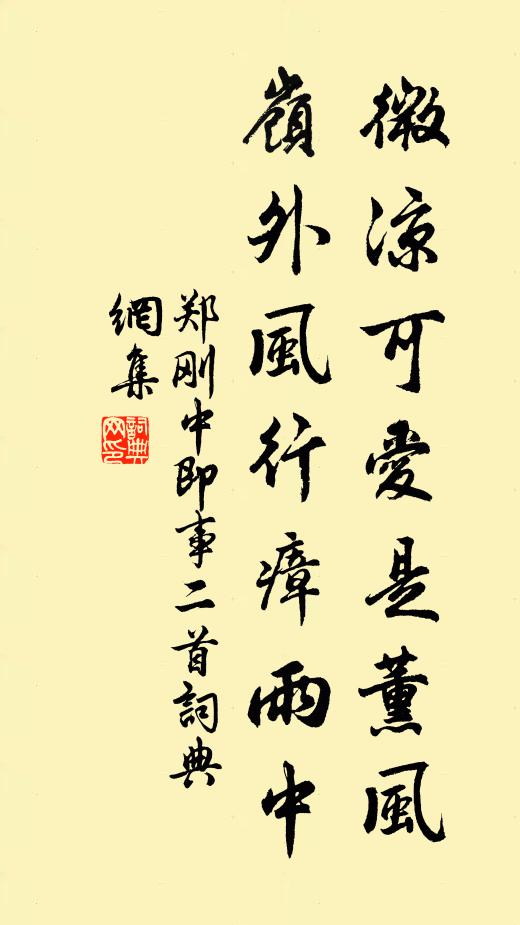 微凉可愛是薰風
嶺外風行瘴雨中
郑刚中即事二首詞典
網集
詞典
网印